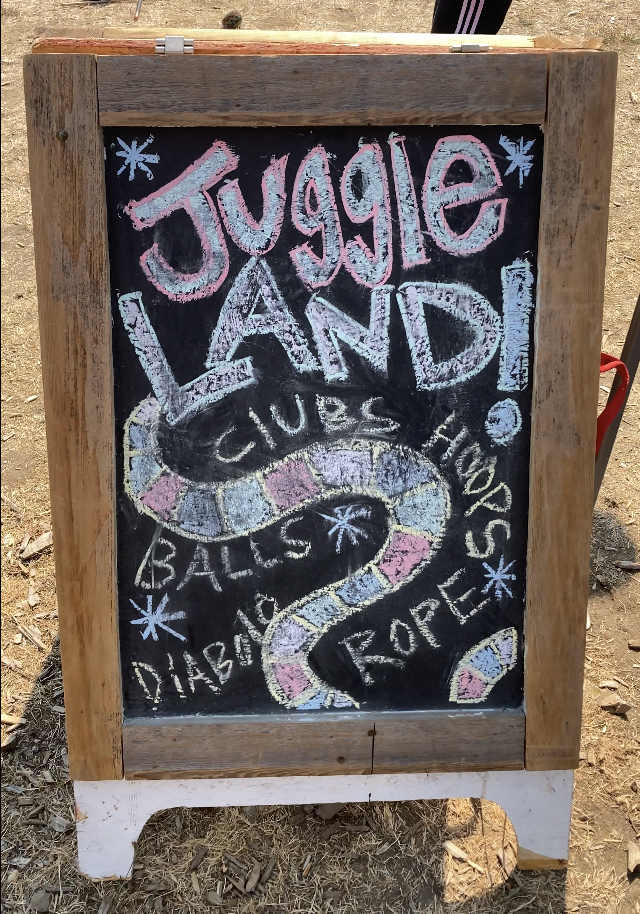 Juggle
LAND!
CLUBS
HOOPS
BALLS
DiABOlO
ROPE